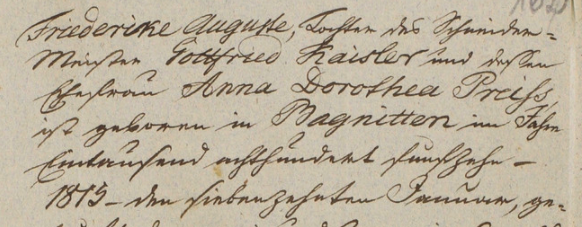 Friederike Auguste, Tochter des Schneider=
Meister Gottfried Kaisler und dessen
Ehefrau Anna Dorothea Preiss,
ist geboren in Bagnitten im Jahre
Eintausend achthundert funfzehn –
1815 – den siebenzehnten Januar, ge-